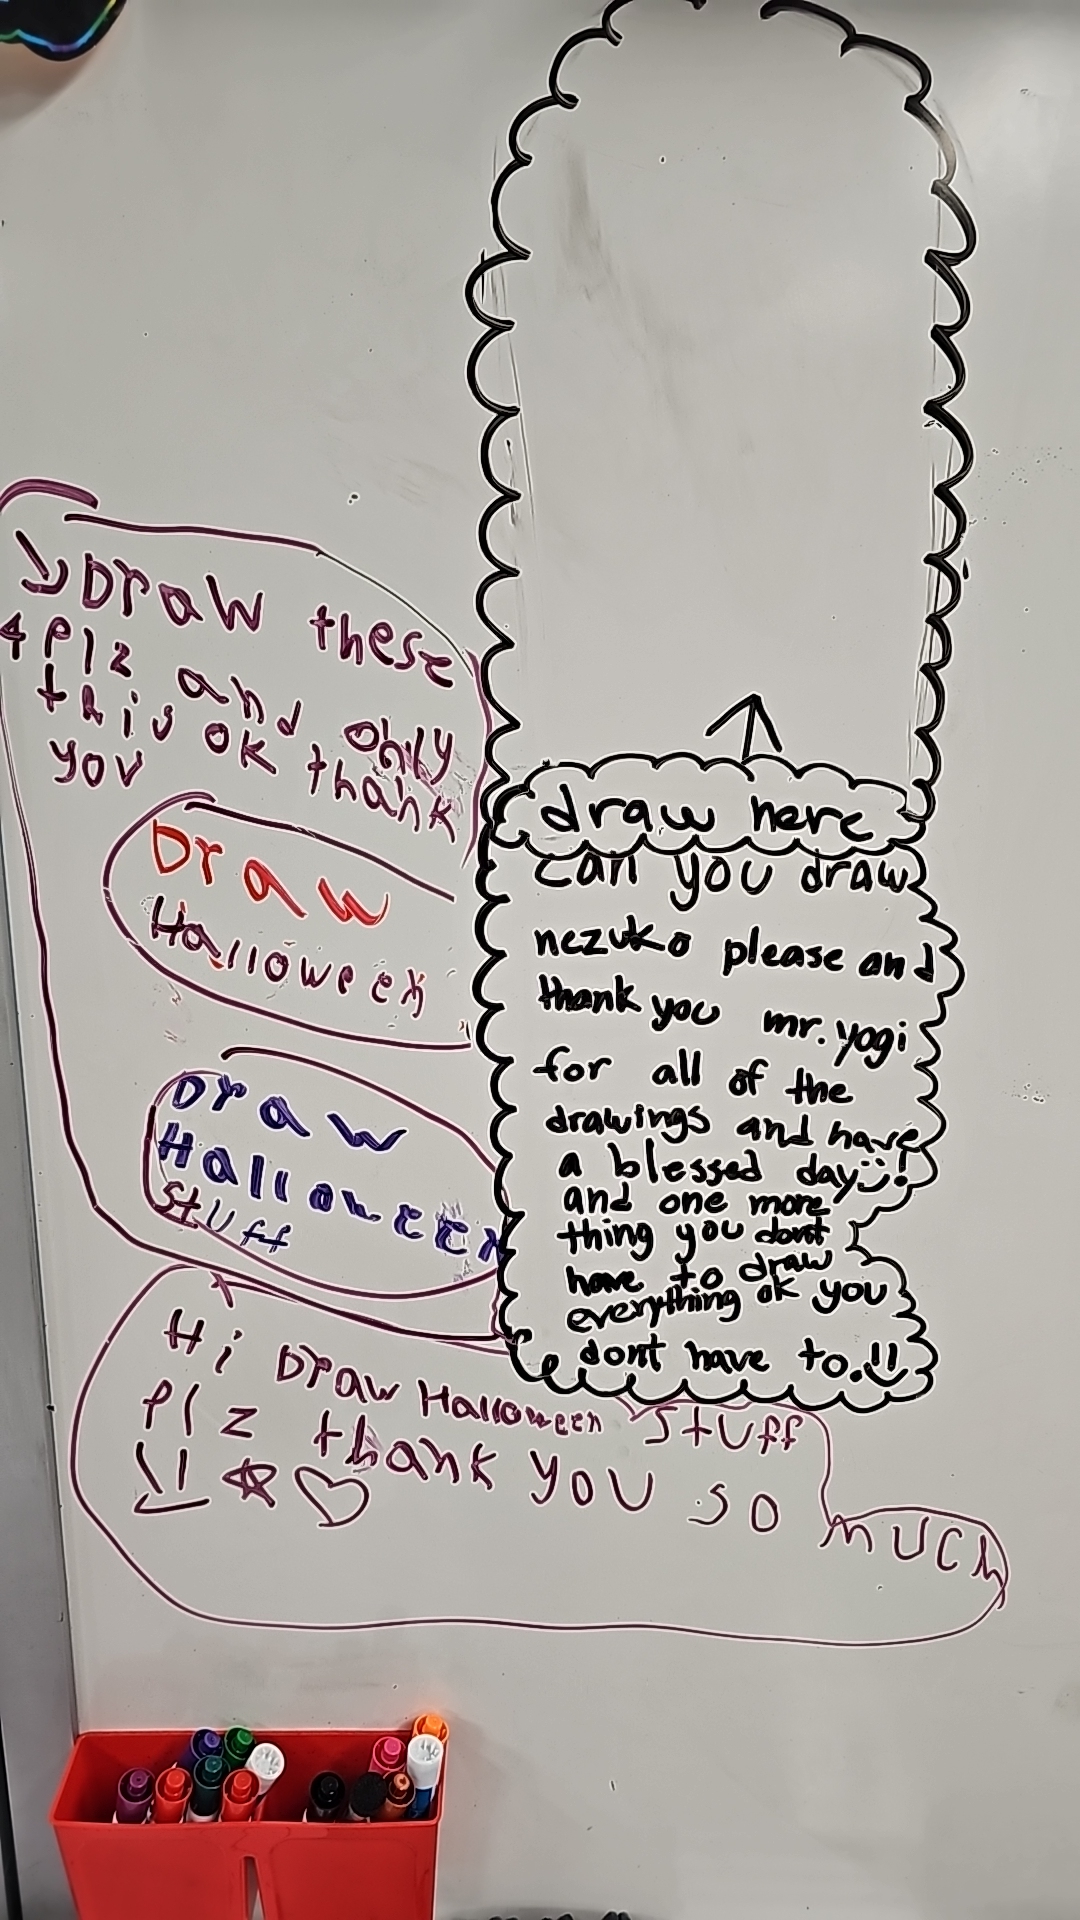 Draw these
4 Plz and only
this ok thank
you
Draw
Halloween
Draw
Halloween
Stuff
draw here
can you draw
nezuko please and
thank you mr. yogi
for all of the
drawings and have
a blessed day !
and one more
thing you dont
have to draw
everything ok you
dont have to.!!
Hi Draw Halloween Stuff
Plz thank you so much